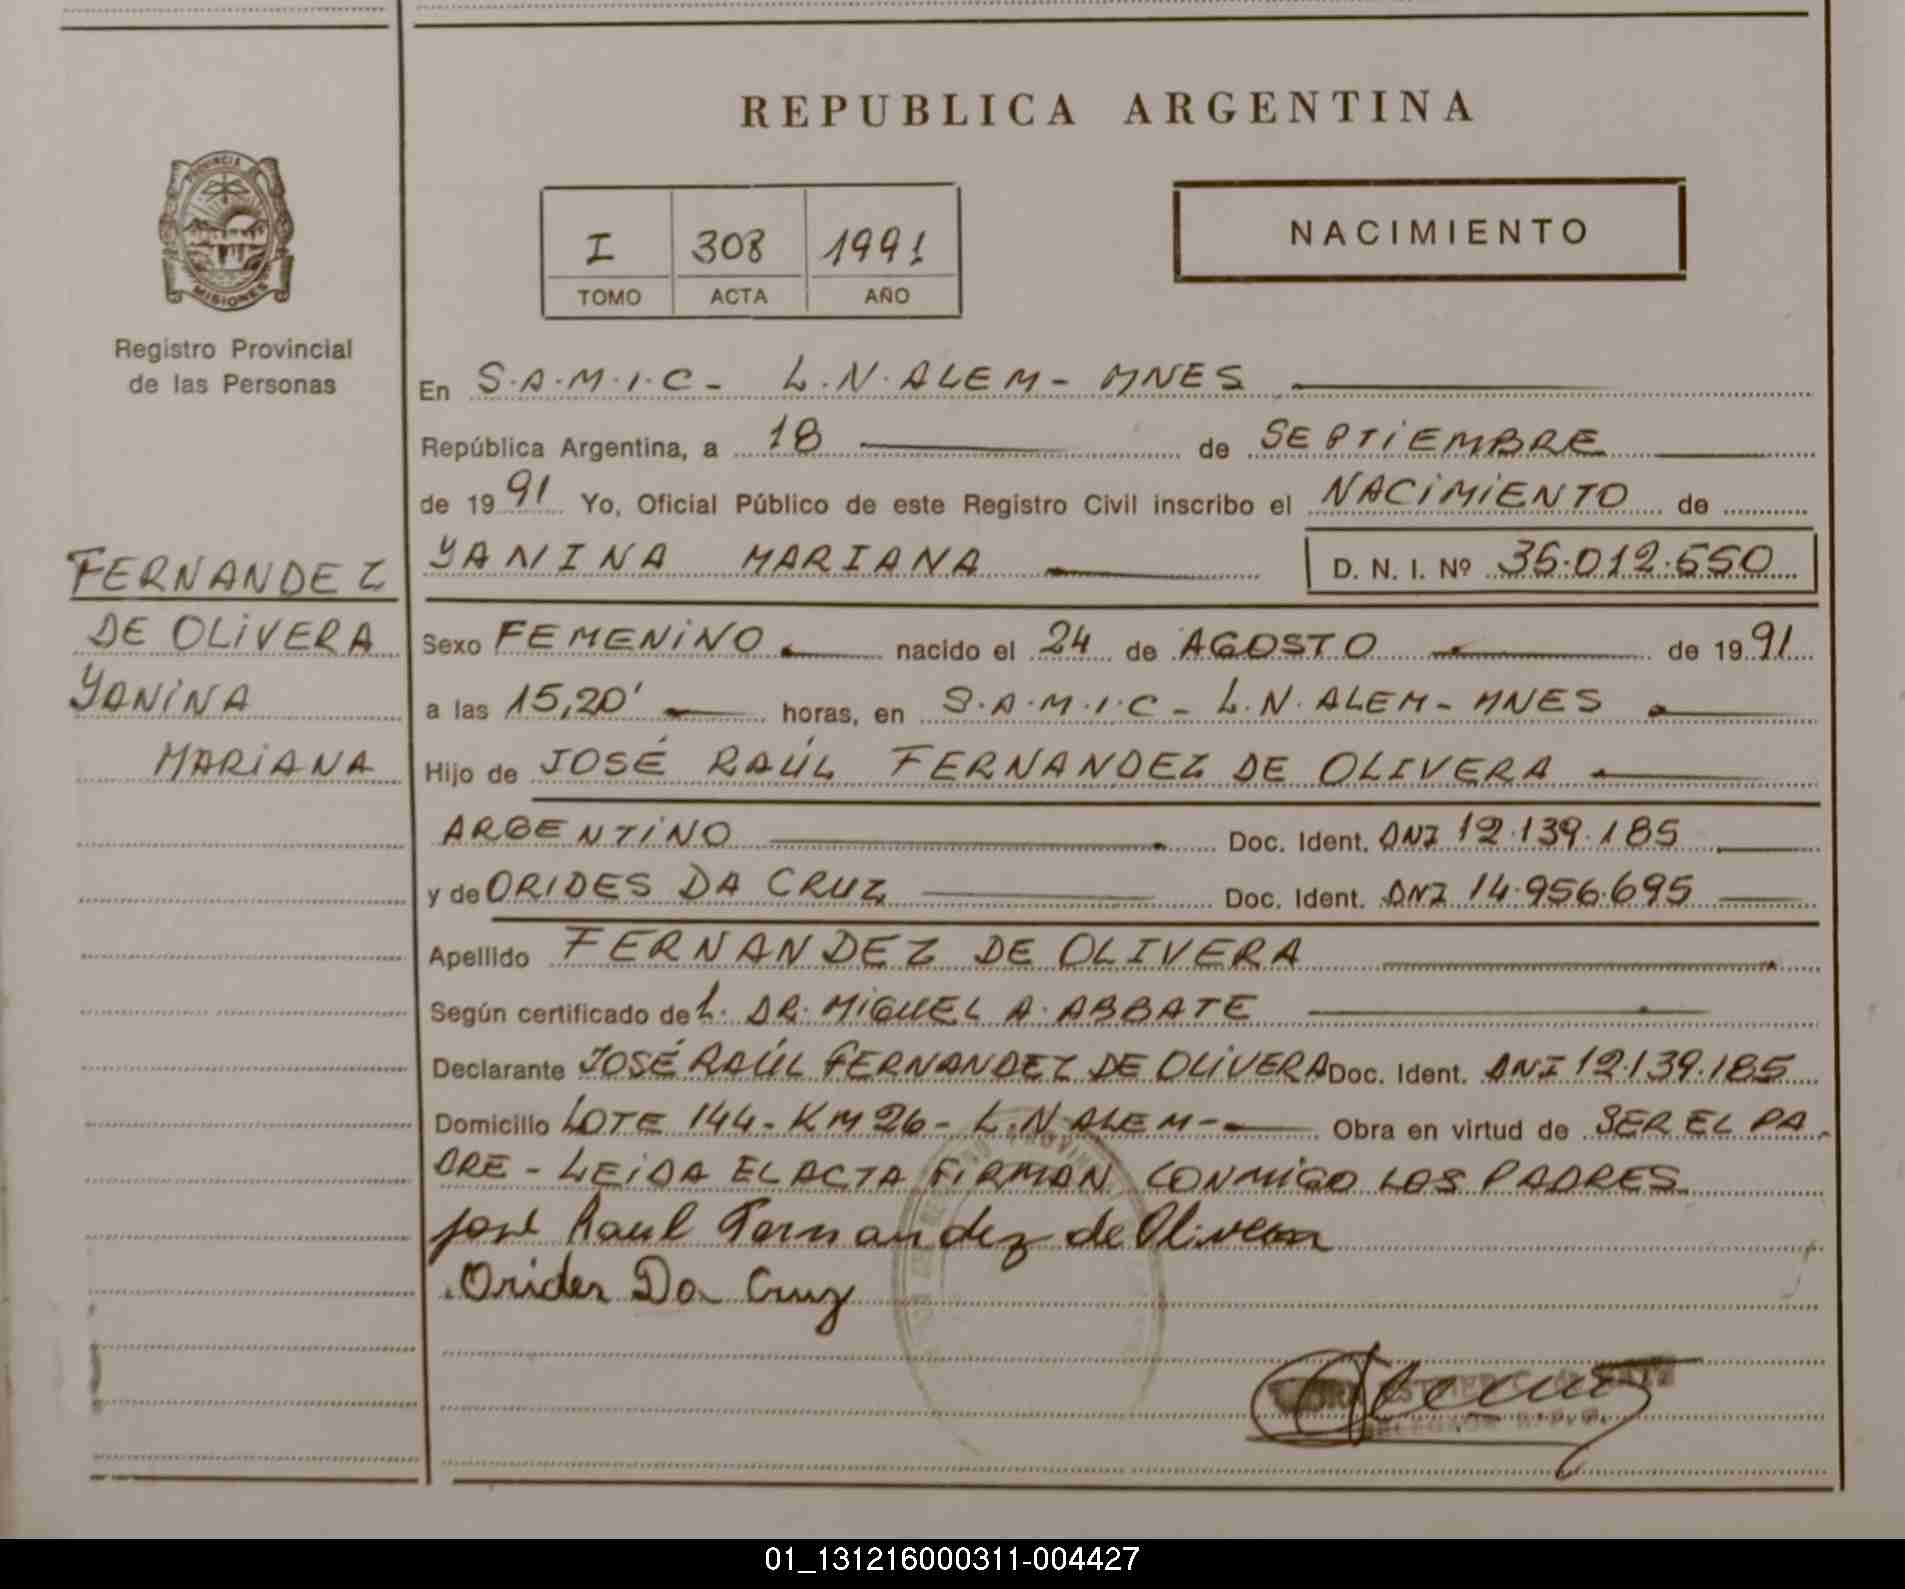 REPUBLICA ARGENTINA
PROVINCIA DE
MISIONES
Registro Provincial
de las Personas
I 308 1991
TOMO ACTA AÑO
NACIMIENTO
En S.A.M.I.C - L.N.ALEM - MNES
República Argentina, a 18 de SEPTIEMBRE
de 1991 Yo, Oficial Público de este Registro Civil inscribo el NACIMIENTO de
YANINA MARIANA D. N. I. Nº 36.012.550
FERNANDEZ
DE OLIVERA
YANINA
MARIANA
Sexo FEMENINO nacido el 24 de AGOSTO de 1991
a las 15,20' horas, en S.A.M.I.C - L.N.ALEM - MNES
Hijo de JOSÉ RAÚL FERNANDEZ DE OLIVERA
ARGENTINO Doc. Ident. DNI 12.139.185
y de ORIDES DA CRUZ Doc. Ident. DNI 14.956.695
Apellido FERNANDEZ DE OLIVERA
Según certificado de L. DR. MIGUEL A. ABBATE
Declarante JOSÉ RAÚL FERNANDEZ DE OLIVERA Doc. Ident. DNI 12.139.185
Domicilio LOTE 144 - KM 26 - L.N ALEM - Obra en virtud de SER EL PA
DRE - LEIDA EL ACTA FIRMAN CONMIGO LOS PADRES
José Raul Fernandez de Olivera
Orides Da Cruz
01_131216000311-004427